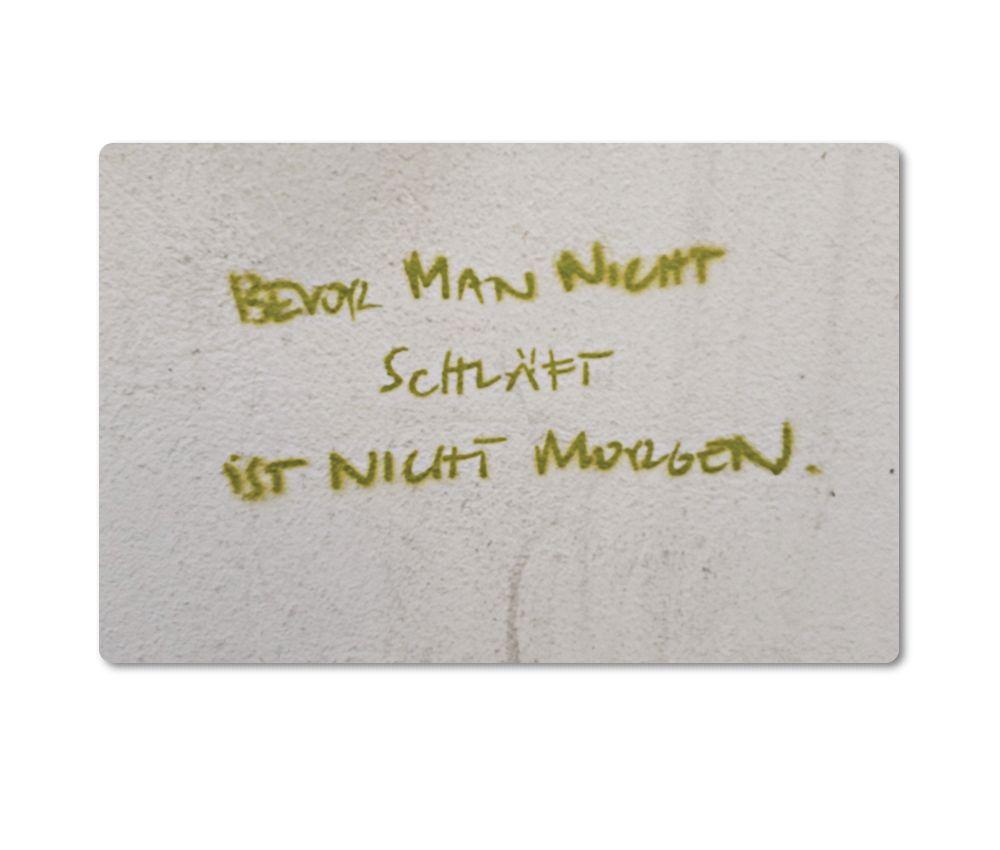 BEVOR MAN NICHT
SCHLÄFT
iST NICHT MORGEN.